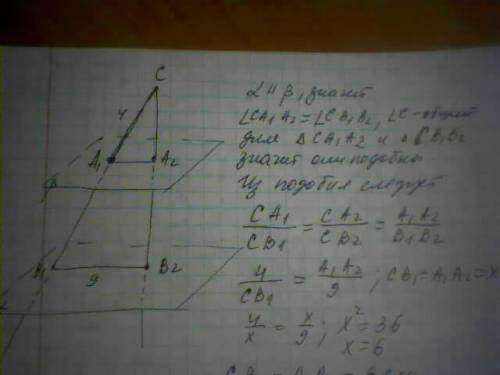 C
4
A₁
A₂
B₁
B₂
9
α || β, значит
∠CA₁A₂ = ∠CB₁B₂, ∠C - общий
для ΔCA₁A₂ и ΔCB₁B₂
значит они подобны
Из подобия следует
CA₁/CB₁ = CA₂/CB₂ = A₁A₂/B₁B₂
4/CB₁ = A₁A₂/9 ; CB₁ = A₁A₂ = x
4/x = x/9 ; x² = 36
x = 6